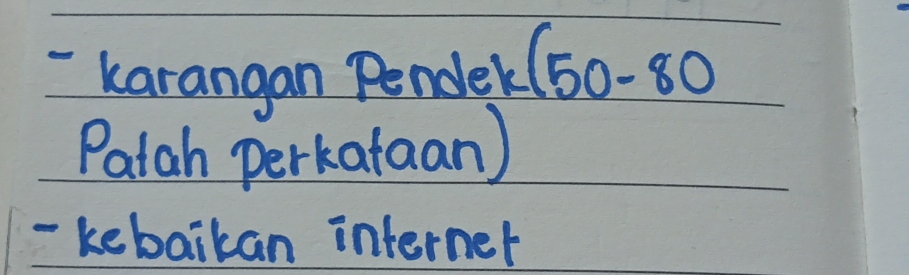 - karangan Pendek (50-80
Patah perkataan)
- kebaikan internet